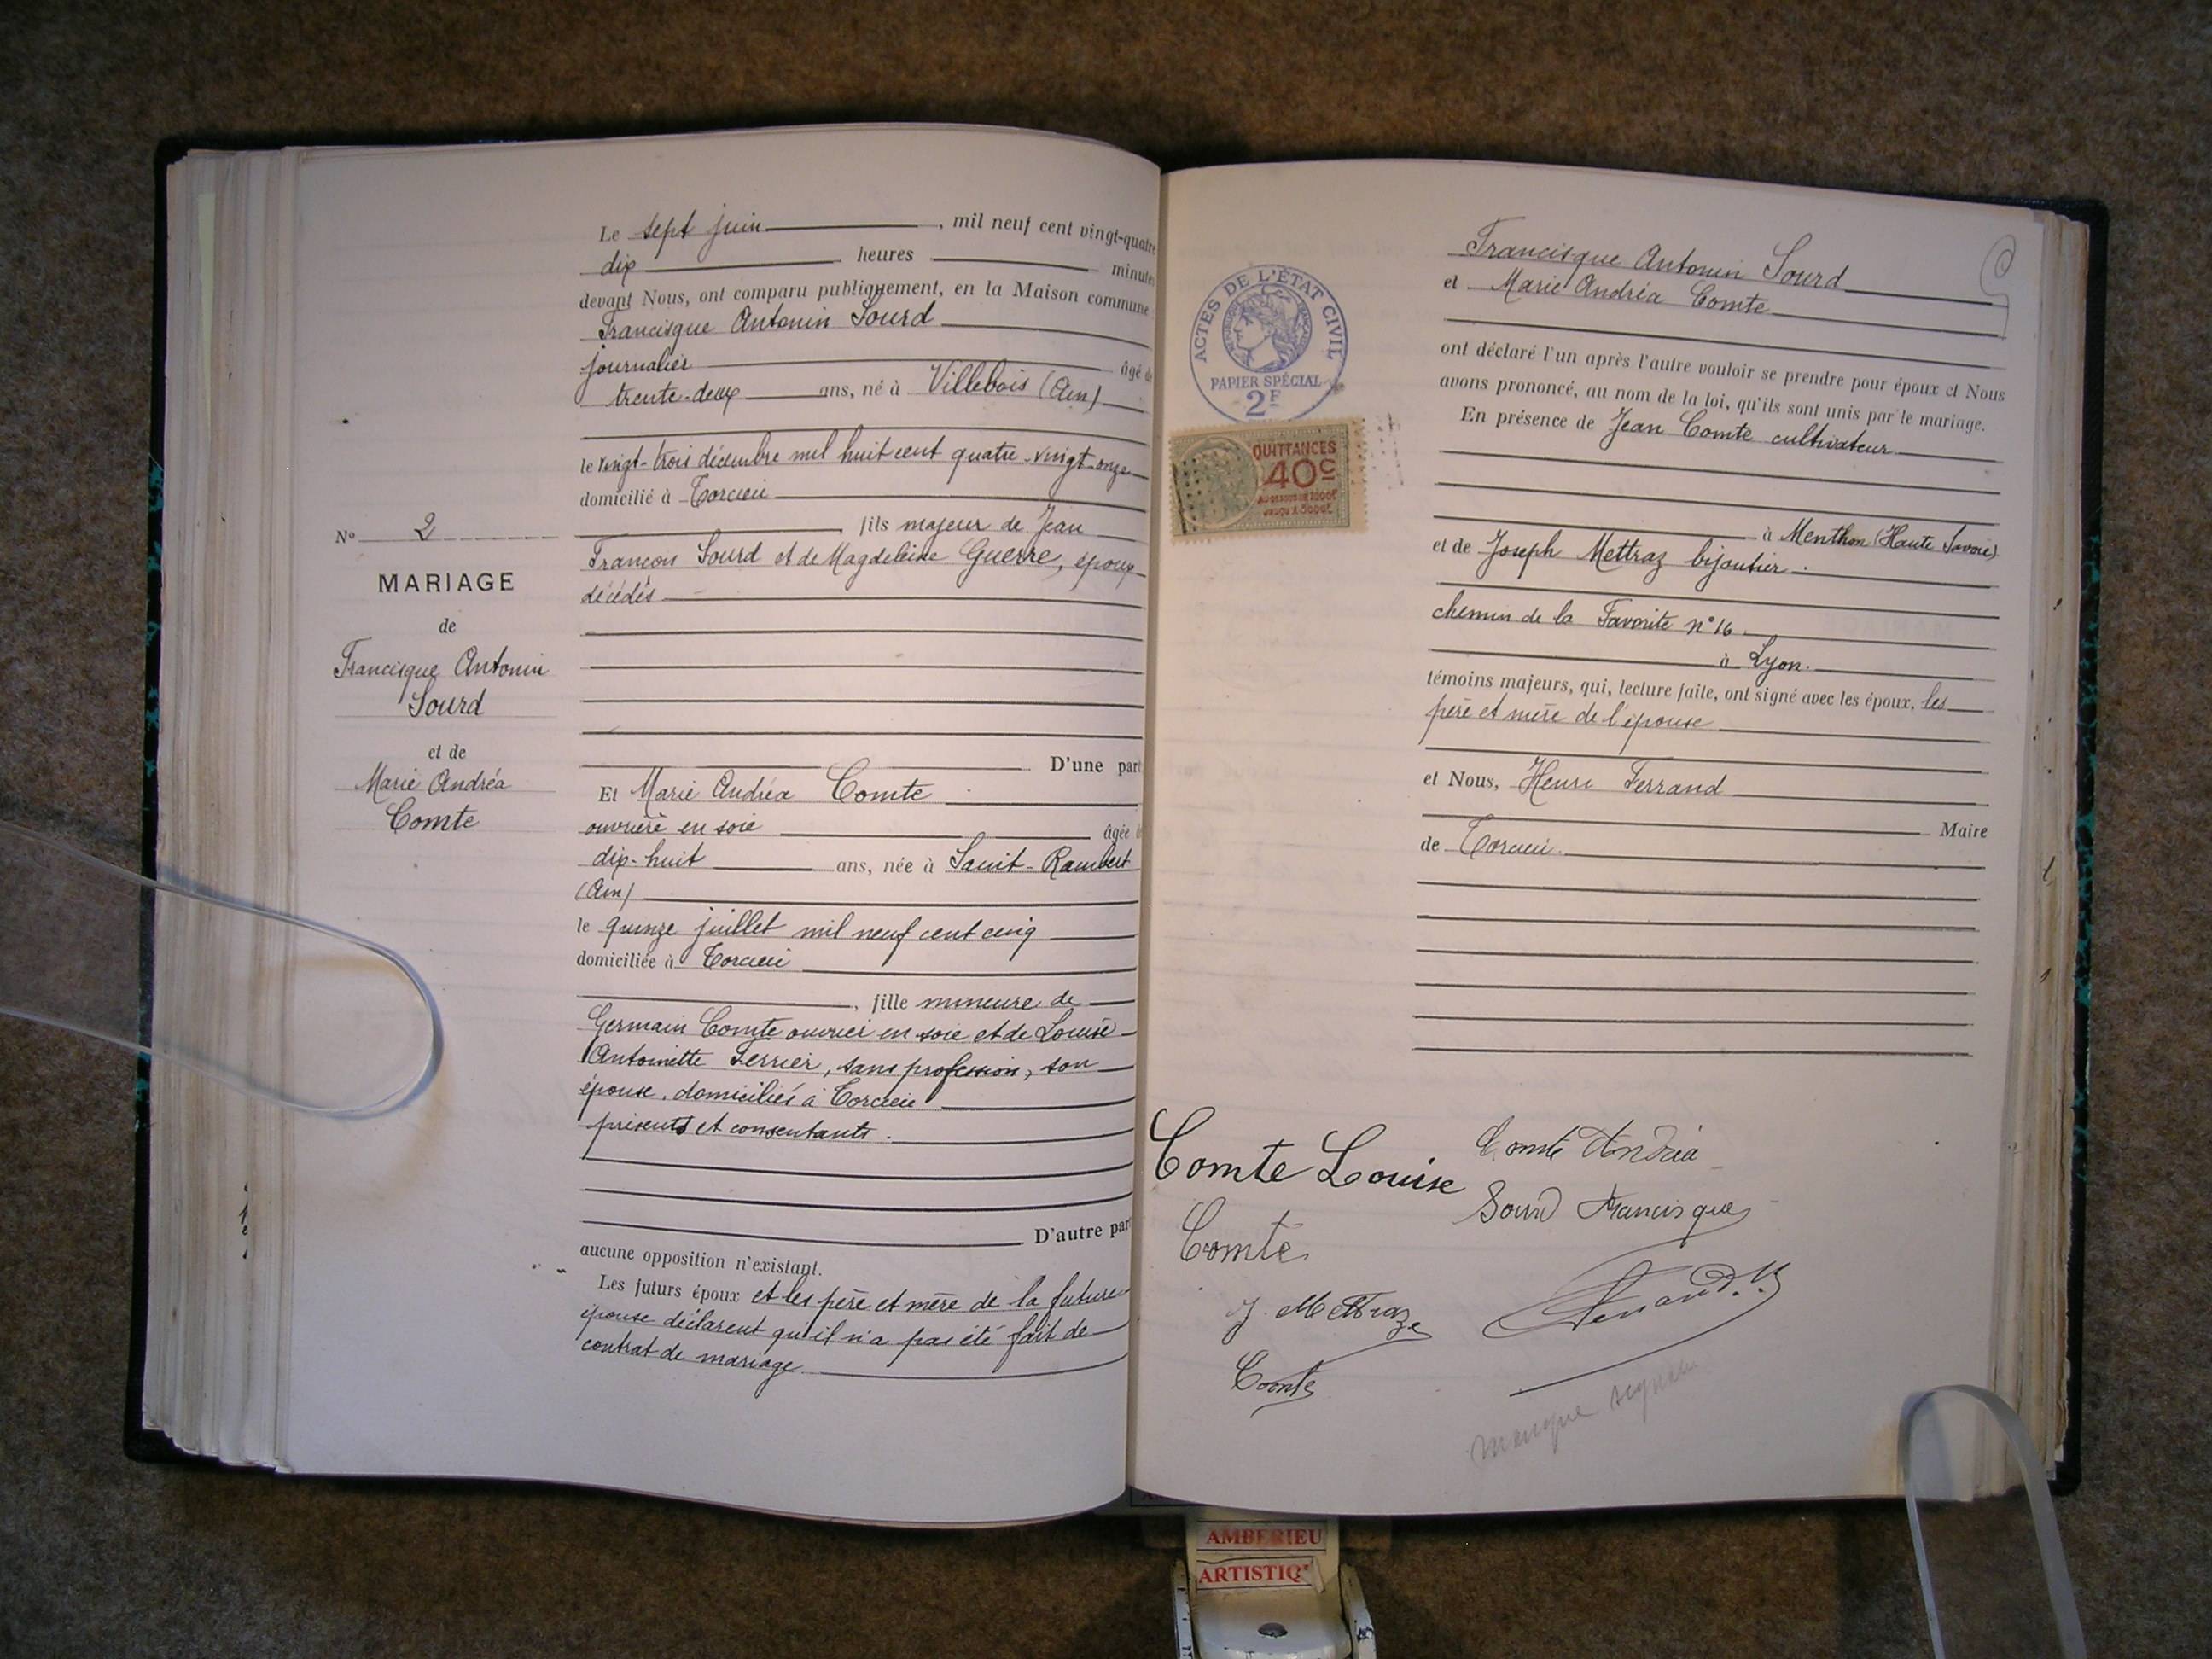 Le sept juin, mil neuf cent vingt-quatre
dix heures minutes
devant Nous, ont comparu publiquement, en la Maison commune
Francisque Antonin Sourd
journalier âgé de
trente-deux ans, né à Villebois (Ain)
le vingt-trois décembre mil huit cent quatre-vingt-onze
domicilié à Torcieu
fils majeur de Jean
François Sourd et de Magdeleine Guerre, époux
décédés
No 2
MARIAGE
de
Francisque Antonin
Sourd
et de
Marie Andréa
Comte
D'une part
Et Marie Andréa Comte
ouvrière en soie âgée
dix-huit ans, née à Saint-Rambert
(Ain)
le quinze juillet mil neuf cent cinq
domiciliée à Torcieu
, fille mineure de
Germain Comte ouvrier en soie et de Louise
Antoinette Ferrier, sans profession, son
épouse, domiciliés à Torcieu
présents et consentants.
D'autre part
aucune opposition n'existant.
Les futurs époux et les père et mère de la future
épouse déclarent qu'il n'a pas été fait de
contrat de mariage
ACTES DE L'ÉTAT CIVIL
RÉPUBLIQUE FRANÇAISE
PAPIER SPÉCIAL
2F
QUITTANCES
40c
Francisque Antonin Sourd
et Marie Andréa Comte
ont déclaré l'un après l'autre vouloir se prendre pour époux et Nous
avons prononcé, au nom de la loi, qu'ils sont unis par le mariage.
En présence de Jean Comte cultivateur
à Menthon (Haute Savoie)
et de Joseph Mettraz bijoutier.
chemin de la Favorite n° 16
à Lyon.
témoins majeurs, qui, lecture faite, ont signé avec les époux, les
père et mère de l'épouse
et Nous, Henri Ferrand
Maire
de Torcieu.
Comte Louise
Comte Andréa
Sourd Francisque
Comte
J. Mettraz
Ferrand
Comte
manque
AMBERIEU
ARTISTIQ